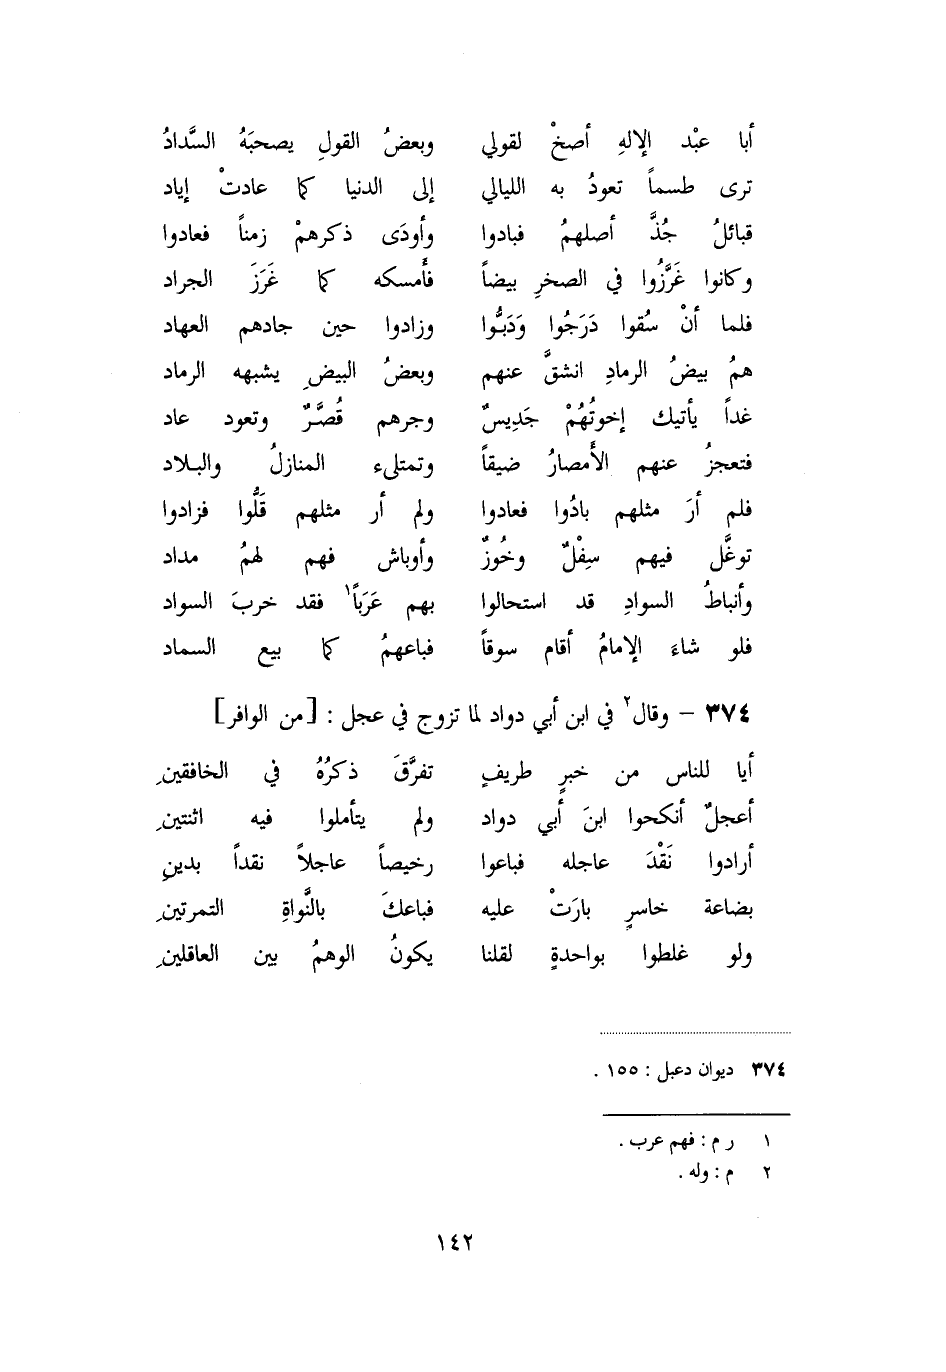 أبا عبْد الإلهِ أصخْ لقولي وبعضُ القولِ يصحبَهُ السَّدادُ
ترى طسماً تعودُ به الليالي إلى الدنيا كما عادتْ إياد
قبائلُ جُذَّ أصلهمُ فبادوا وأودَى ذكرهمْ زمناً فعادوا
وكانوا غَرَّزُوا في الصخرِ بيضاً فأَمسكه كما غَرَزَ الجراد
فلما أنْ سُقوا دَرَجُوا وَدَبُّوا وزادوا حين جادهم العهاد
همُ بيضُ الرمادِ انشقَّ عنهم وبعضُ البيضِ يشبهه الرماد
غداً يأتيك إخوتُهُمْ جَدِيسٌ وجرهم قُصَّرٌ وتعود عاد
فتعجزُ عنهم الأَمصارُ ضيقاً وتمتلىء المنازلُ والبلاد
فلم أرَ مثلهم بادُوا فعادوا ولم أر مثلهم قَلُّوا فزادوا
توغَّل فيهم سِفْلٌ وخُوزٌ وأوباش فهم لهمُ مداد
وأنباطُ السوادِ قد استحالوا بهم عَرَباً١ فقد خربَ السواد
فلو شاءَ الإمامُ أقام سوقاً فباعهمُ كما بيع السماد
٣٧٤ – وقال٢ في ابن أبي دواد لما تزوج في عجل : [من الوافر]
أيا للناس من خبرٍ طريفٍ تفرَّقَ ذكرُهُ في الخافقينِ
أعجلٌ أنكحوا ابنَ أبي دواد ولم يتأملوا فيه اثنتينِ
أرادوا نَقْدَ عاجله فباعوا رخيصاً عاجلاً نقداً بدينِ
بضاعة خاسرٍ بارَتْ عليه فباعكَ بالنَّواةِ التمرتينِ
ولو غلطوا بواحدةٍ لقلنا يكونُ الوهمُ بين العاقلينِ
٣٧٤ ديوان دعبل : ١٥٥ .
١ ر م : فهم عرب .
٢ م : وله .
١٤٢